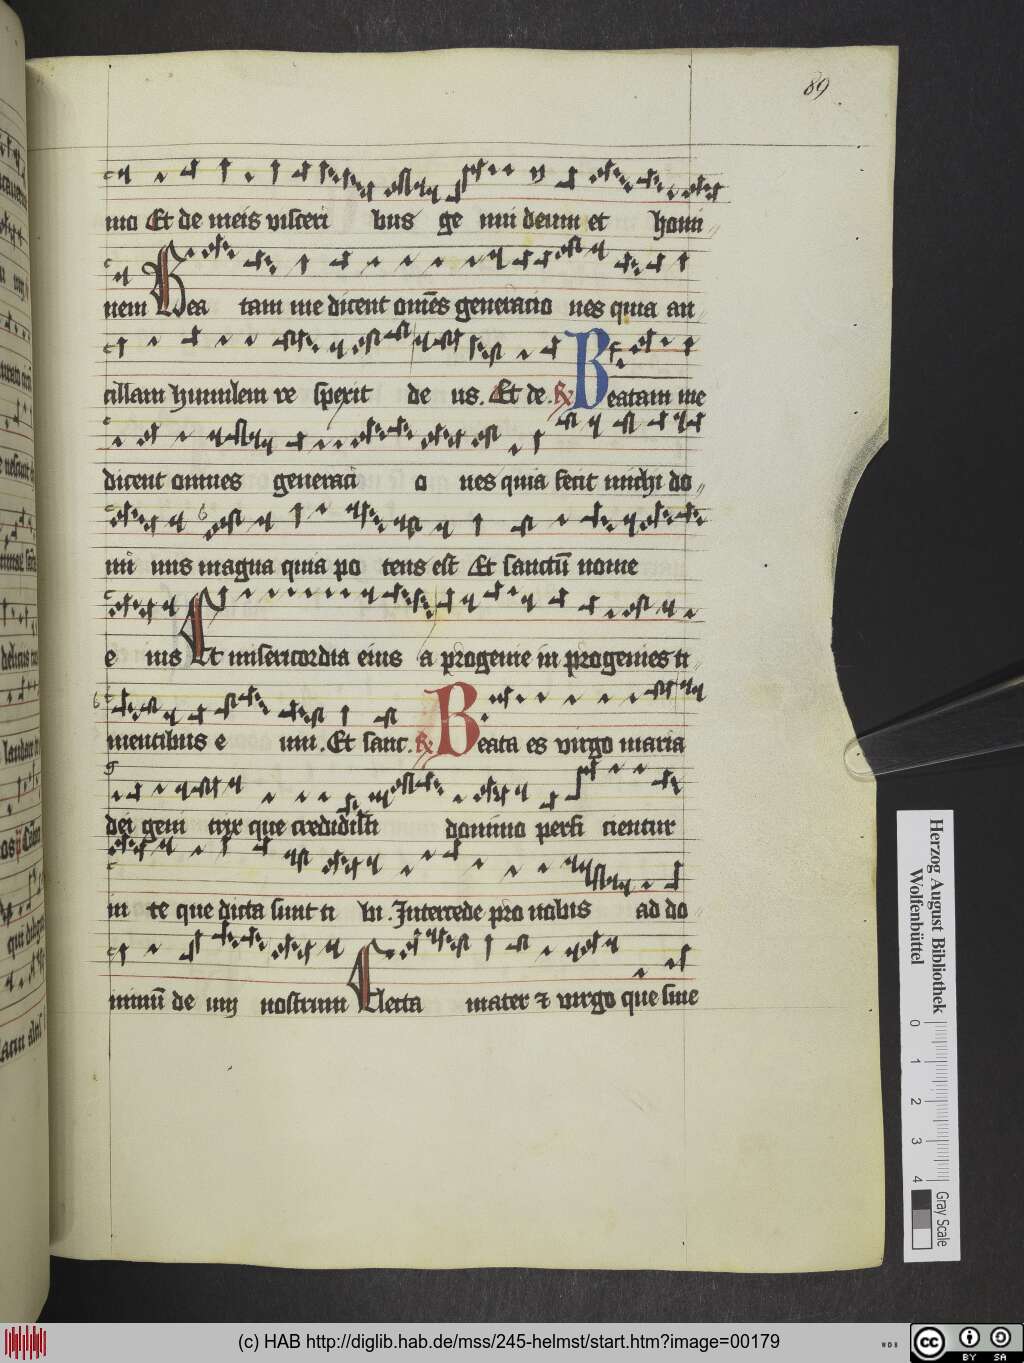 89
mo Et de meis visceri bus ge nui deum et homi
nem Bea tam me dicent om̄es generacio nes quia an
cillam humilem re spexit de us. Et de. ℟ Beatam me
dicent omnes generaci o nes quia fecit michi do
mi nus magna quia po tens est Et sanctū nome
e ius Et misericordia eius a progenie in progenies ti
mentibus e um. Et sanc. ℟ Beata es virgo maria
dei geni trix que credidisti domino perfi cientur
in te que dicta sunt ti bi. Intercede pro nobis ad do
minū de um nostrum Electa mater ⁊ virgo que sine
Herzog August Bibliothek
Wolfenbüttel
0 1 2 3 4
Gray Scale
(c) HAB http://diglib.hab.de/mss/245-helmst/start.htm?image=00179
WDB
cc BY SA